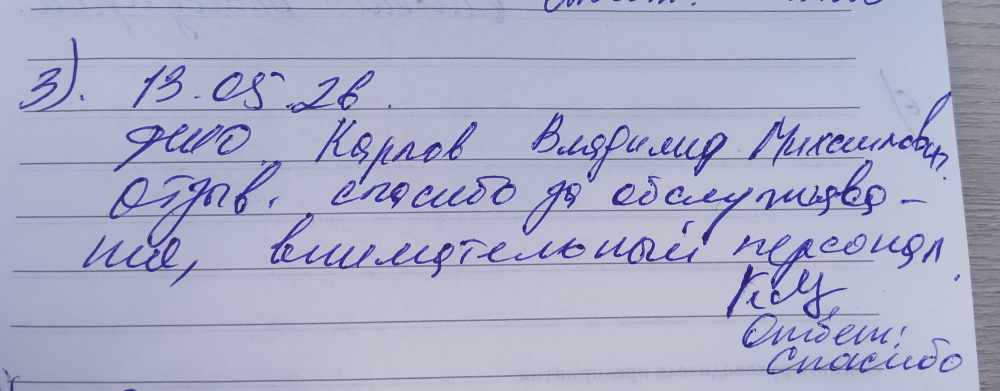 3). 13.05.26.
ФИО Карпов Владимир Михайлович.
Отзыв. спасибо за обслужива-
ние, внимательный персонал.
Ответ:
Спасибо